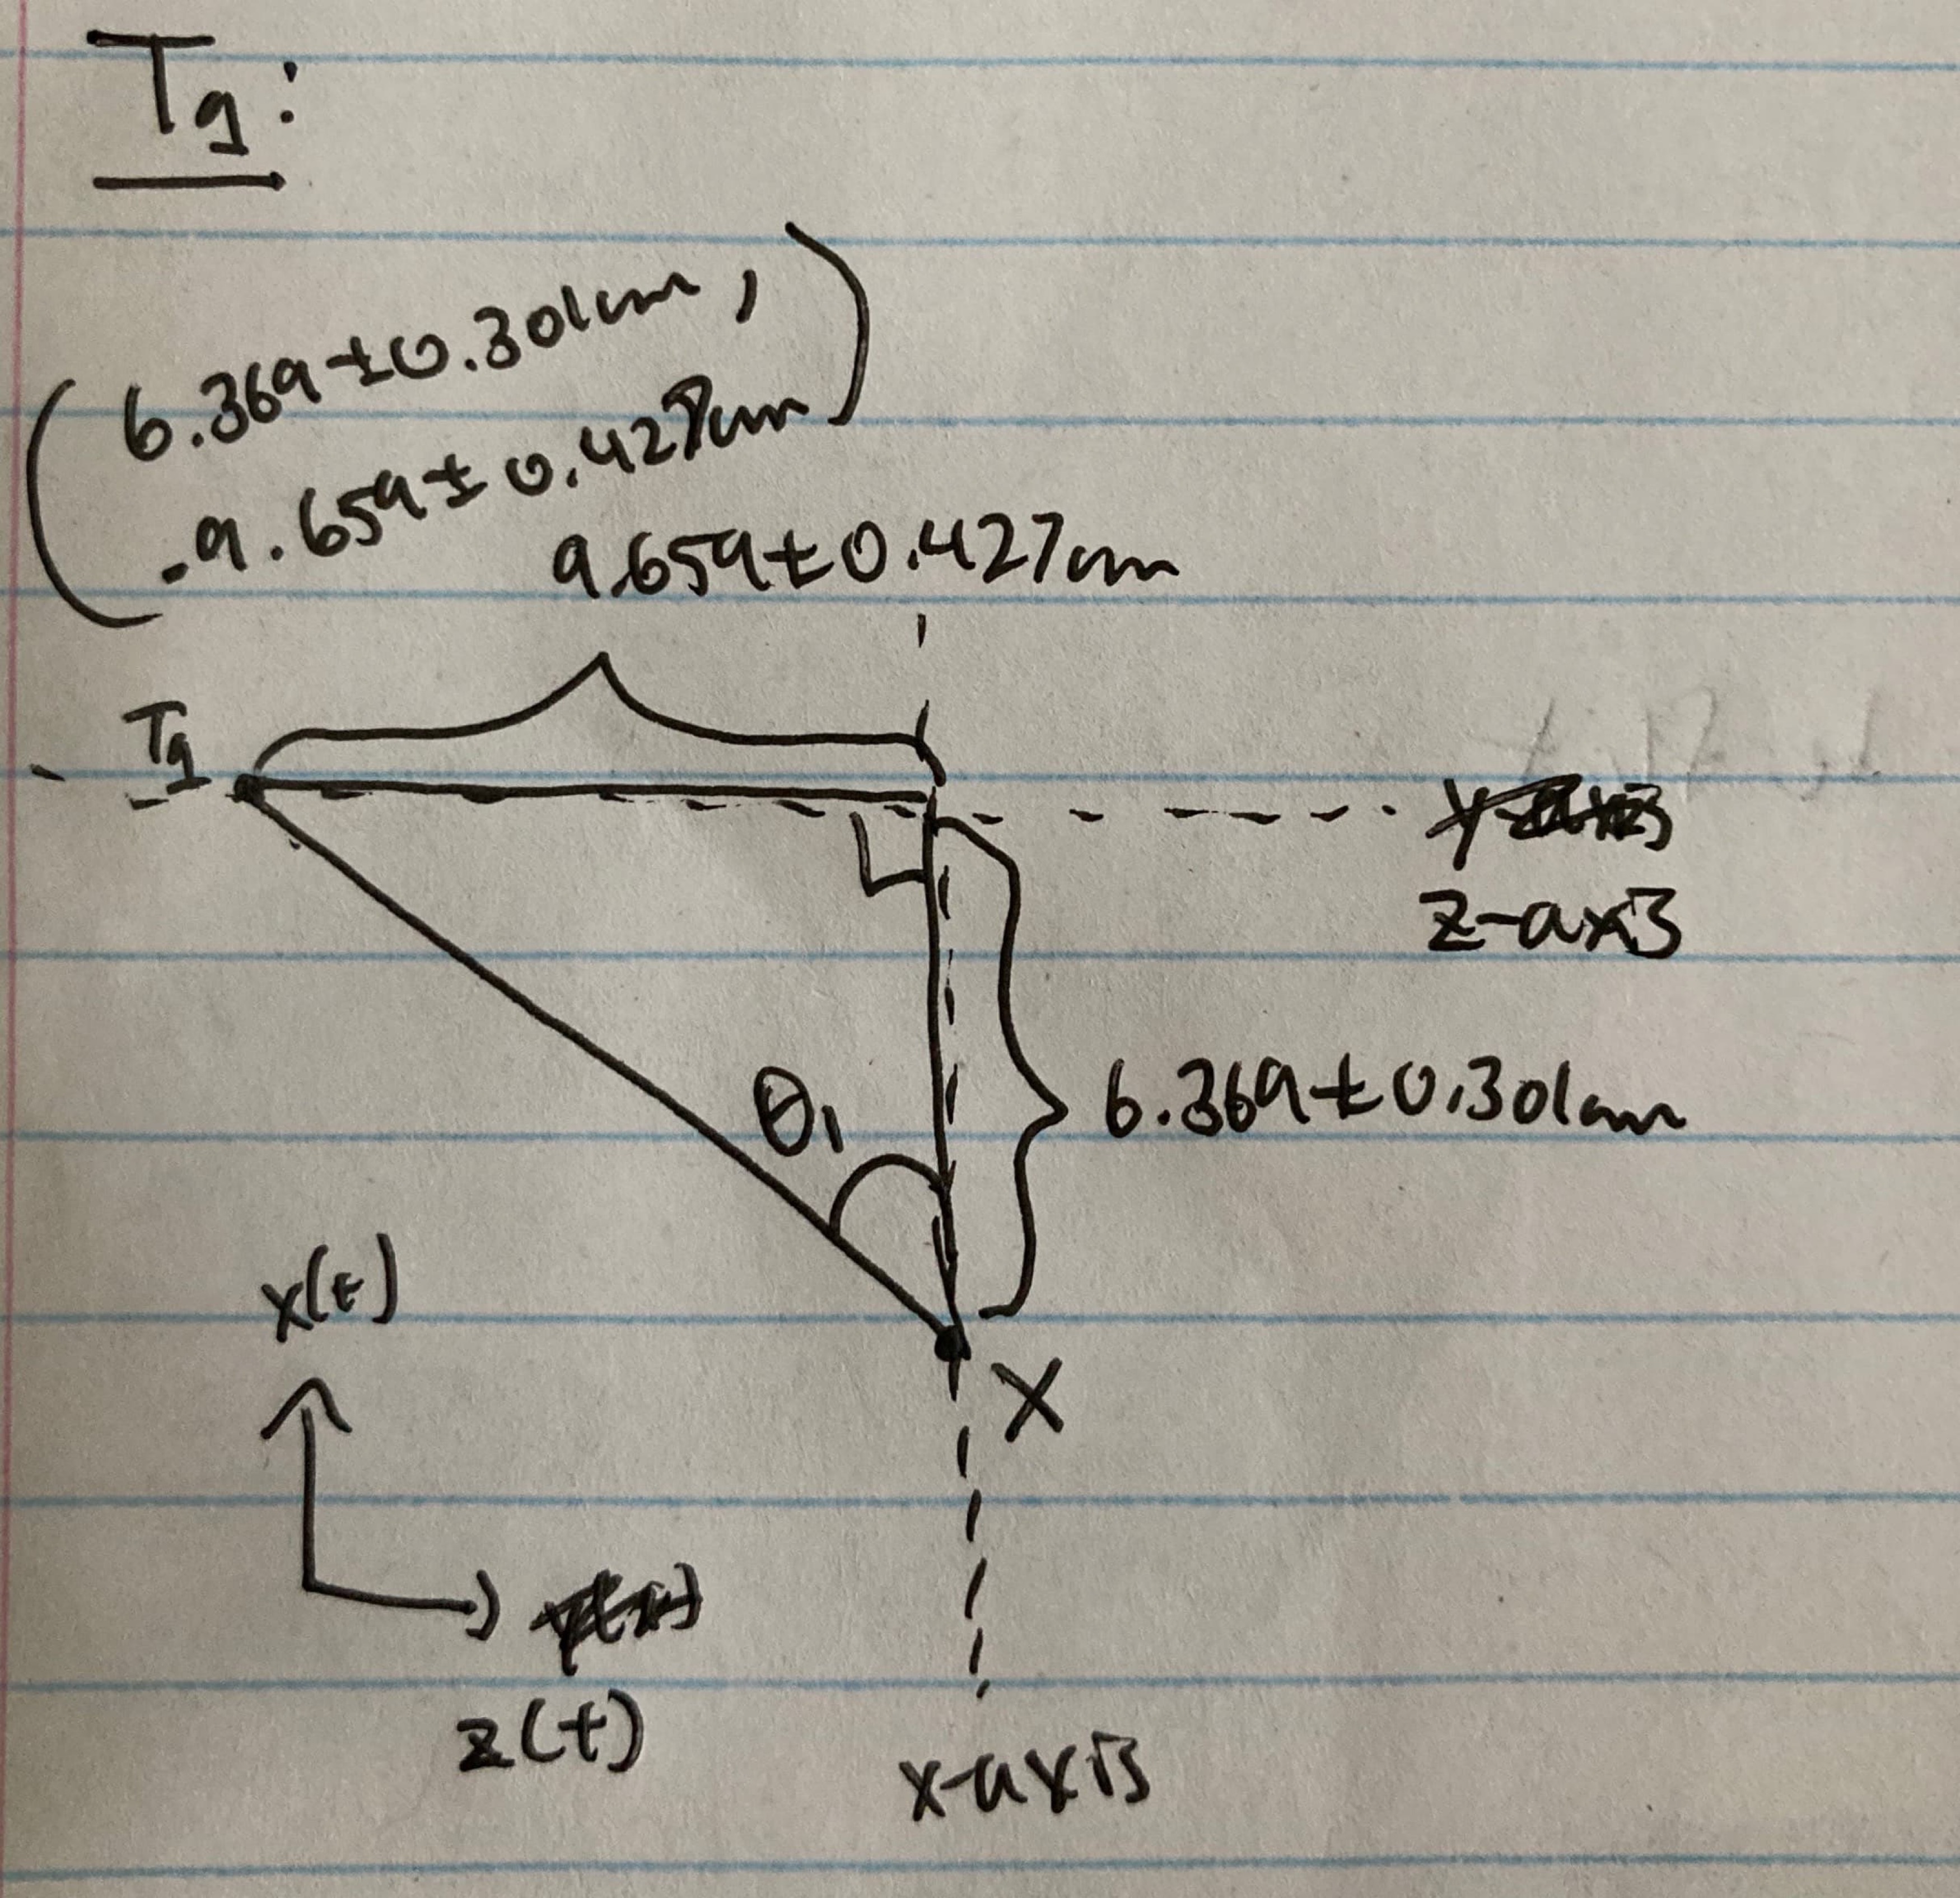 Tg:
(6.369±0.301cm,
-9.659±0.427cm)
9.659±0.427cm
Tg
z-axis
θ₁
6.369±0.301cm
x(t)
X
z(t)
x-axis